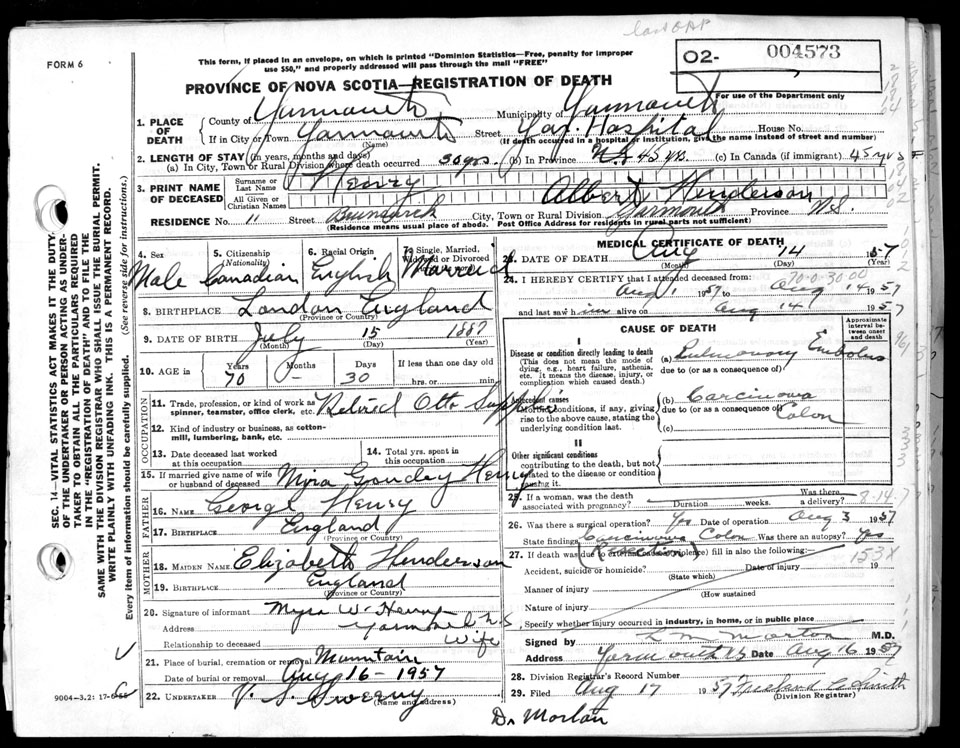 FORM 6
This form, if placed in an envelope, on which is printed "Dominion Statistics—Free, penalty for improper
use $50," and properly addressed will pass through the mail "FREE"
O2- 004573
For use of the Department only
PROVINCE OF NOVA SCOTIA—REGISTRATION OF DEATH
1. PLACE OF DEATH
County of Yarmouth Municipality of Yarmouth
If in City or Town Yarmouth Street Yar. Hospital House No.
(Name) (If death occurred in a hospital or institution, give the name instead of street and number)
2. LENGTH OF STAY (in years, months and days)
(a) In City, Town or Rural Division where death occurred 30 yrs. (b) In Province N.S. 45 yrs. (c) In Canada (if immigrant) 45 yrs
3. PRINT NAME OF DECEASED
Surname or Last Name Henry
All Given or Christian Names Albert Henderson
RESIDENCE No. 11 Street Brunswick City, Town or Rural Division Yarmouth Province N.S.
(Residence means usual place of abode. Post Office Address for residents in rural parts not sufficient)
4. Sex Male
5. Citizenship (Nationality) Canadian
6. Racial Origin English
7. Single, Married, Widowed or Divorced Married
8. BIRTHPLACE London England
(Province or Country)
9. DATE OF BIRTH July 15 1887
(Month) (Day) (Year)
10. AGE in Years 70 Months – Days 30 If less than one day
hrs. or min.
OCCUPATION
11. Trade, profession, or kind of work as
spinner, teamster, office clerk, etc. Retired
12. Kind of industry or business, as cotton-
mill, lumbering, bank, etc.
13. Date deceased last worked
at this occupation
14. Total yrs. spent in
this occupation
15. If married give name of wife
or husband of deceased Myra Henry
FATHER
16. NAME George Henry
17. BIRTHPLACE England
(Province or Country)
MOTHER
18. MAIDEN NAME Elizabeth Henderson
19. BIRTHPLACE England
(Province or Country)
20. Signature of informant Myra W. Henry
Address Yarmouth N.S.
Relationship to deceased Wife
21. Place of burial, cremation or removal Mountain
Date of burial or removal Aug 16 - 1957
22. UNDERTAKER V. S. Sweeny
(Name and address)
MEDICAL CERTIFICATE OF DEATH
23. DATE OF DEATH Aug 14 1957
(Month) (Day) (Year)
24. I HEREBY CERTIFY that I attended deceased from:
Aug 1 1957 to Aug 14 1957
and last saw him alive on Aug 14 1957
CAUSE OF DEATH
Approximate interval between onset and death
I
Disease or condition directly leading to death
(This does not mean the mode of
dying, e.g., heart failure, asthenia,
etc. It means the disease, injury, or
complication which caused death.)
(a) Pulmonary Embolus
due to (or as a consequence of)
Antecedent causes
Morbid conditions, if any, giving
rise to the above cause, stating the
underlying condition last.
(b) Carcinoma
due to (or as a consequence of)
Colon
(c)
II
Other significant conditions
contributing to the death, but not
related to the disease or condition
causing it.
25. If a woman, was the death
associated with pregnancy? Duration weeks. Was there
a delivery?
8-14-7
26. Was there a surgical operation? Yes Date of operation Aug 3 1957
State findings Carcinoma Colon Was there an autopsy? Yes
(Resection)
153X
27. If death was due to external causes (violence) fill in also the following:
Accident, suicide or homicide? Date of injury 19
(State which)
Manner of injury
(How sustained)
Nature of injury
Specify whether injury occurred in industry, in home, or in public place
Signed by L. M. Morton M.D.
Address Yarmouth N.S. Date Aug 16 1957
28. Division Registrar's Record Number
29. Filed Aug 17 1957
(Division Registrar)
Dr
SEC. 14—VITAL STATISTICS ACT MAKES IT THE DUTY
OF THE UNDERTAKER OR PERSON ACTING AS UNDER-
TAKER TO OBTAIN ALL THE PARTICULARS REQUIRED
IN THE "REGISTRATION OF DEATH" AND TO FILE THE
SAME WITH THE DIVISION REGISTRAR WHO SHALL ISSUE THE BURIAL PERMIT.
WRITE PLAINLY WITH UNFADING INK. THIS IS A PERMANENT RECORD.
Every item of information should be carefully supplied. (See reverse side for instructions.)